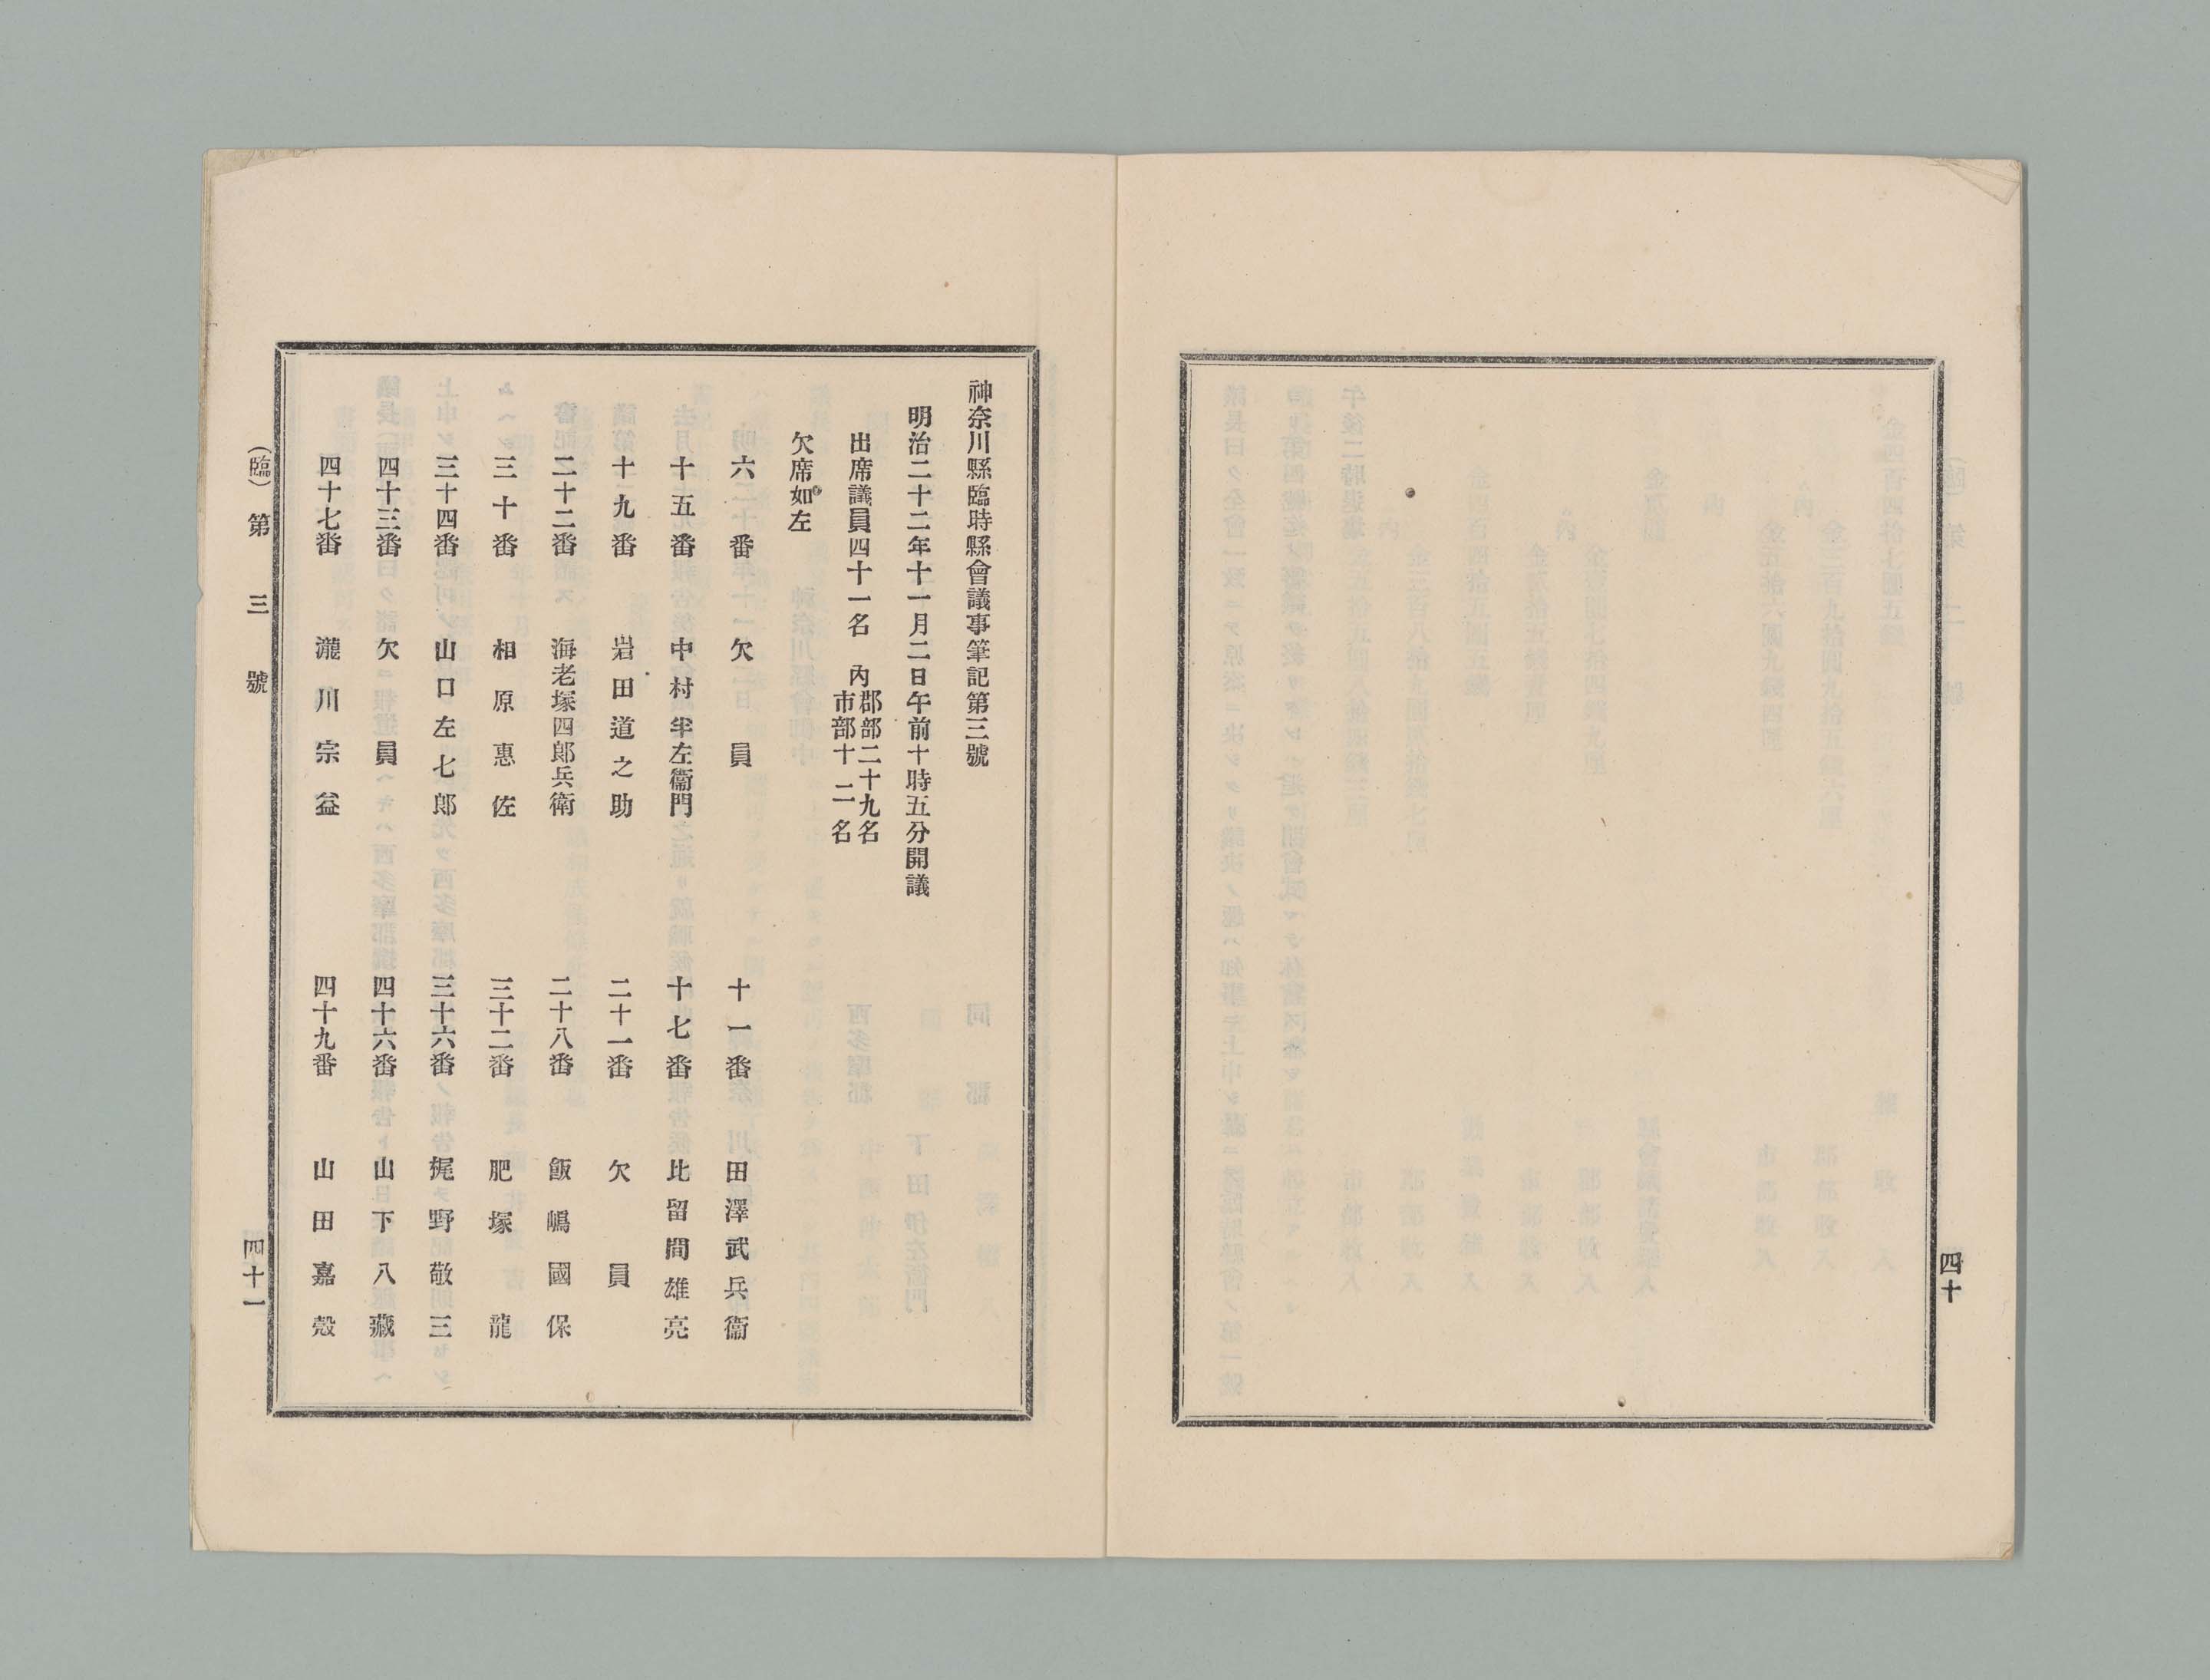 四十
神奈川縣臨時縣會議事筆記第三號
明治二十二年十一月二日午前十時五分開議
出席議員四十一名 內 郡部二十九名
市部十二名
欠席如左
六番 欠員 十一番 田澤武兵衞
十五番 中村半左衞門 十七番 比留間雄亮
十九番 岩田道之助 二十一番 欠員
二十二番 海老塚四郎兵衛 二十八番 飯嶋國保
三十番 相原惠佐 三十二番 肥塚龍
三十四番 山口左七郎 三十六番 梶野敬三
四十三番 欠員 四十六番 山下八藏
四十七番 瀧川宗益 四十九番 山田嘉穀
(臨) 第三號 四十一